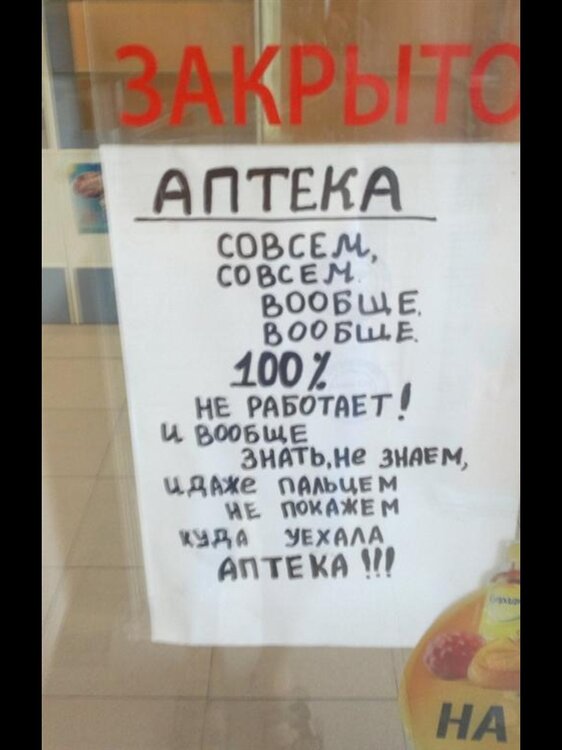 ЗАКРЫТО
АПТЕКА
СОВСЕМ,
СОВСЕМ.
ВООБЩЕ.
ВООБЩЕ.
100%
НЕ РАБОТАЕТ!
И ВООБЩЕ
ЗНАТЬ,НЕ ЗНАЕМ,
И ДАЖЕ ПАЛЬЦЕМ
НЕ ПОКАЖЕМ
КУДА УЕХАЛА
АПТЕКА !!!
НА